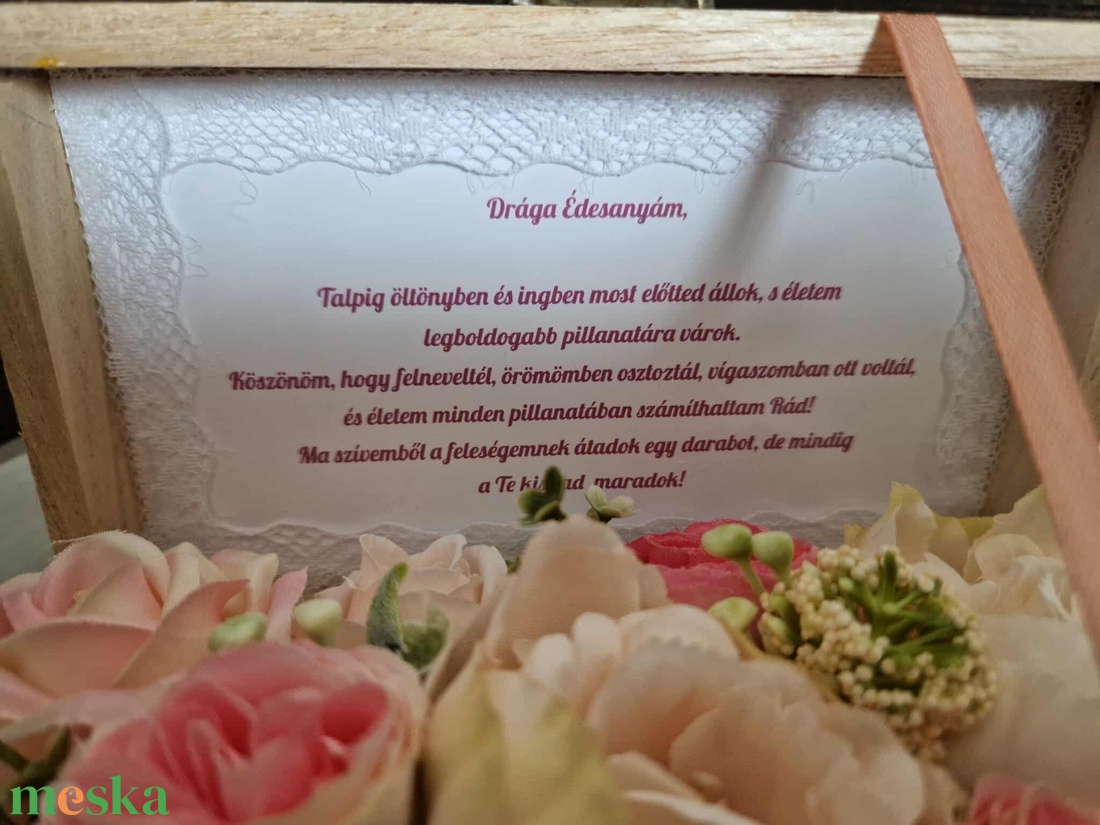 Drága Édesanyám,
Talpig öltönyben és ingben most előtted állok, s életem
legboldogabb pillanatára várok.
Köszönöm, hogy felneveltél, örömömben osztoztál, vígaszomban ott voltál,
és életem minden pillanatában számíthattam Rád!
Ma szívemből a feleségemnek átadok egy darabot, de mindig
a Te maradok!
meska